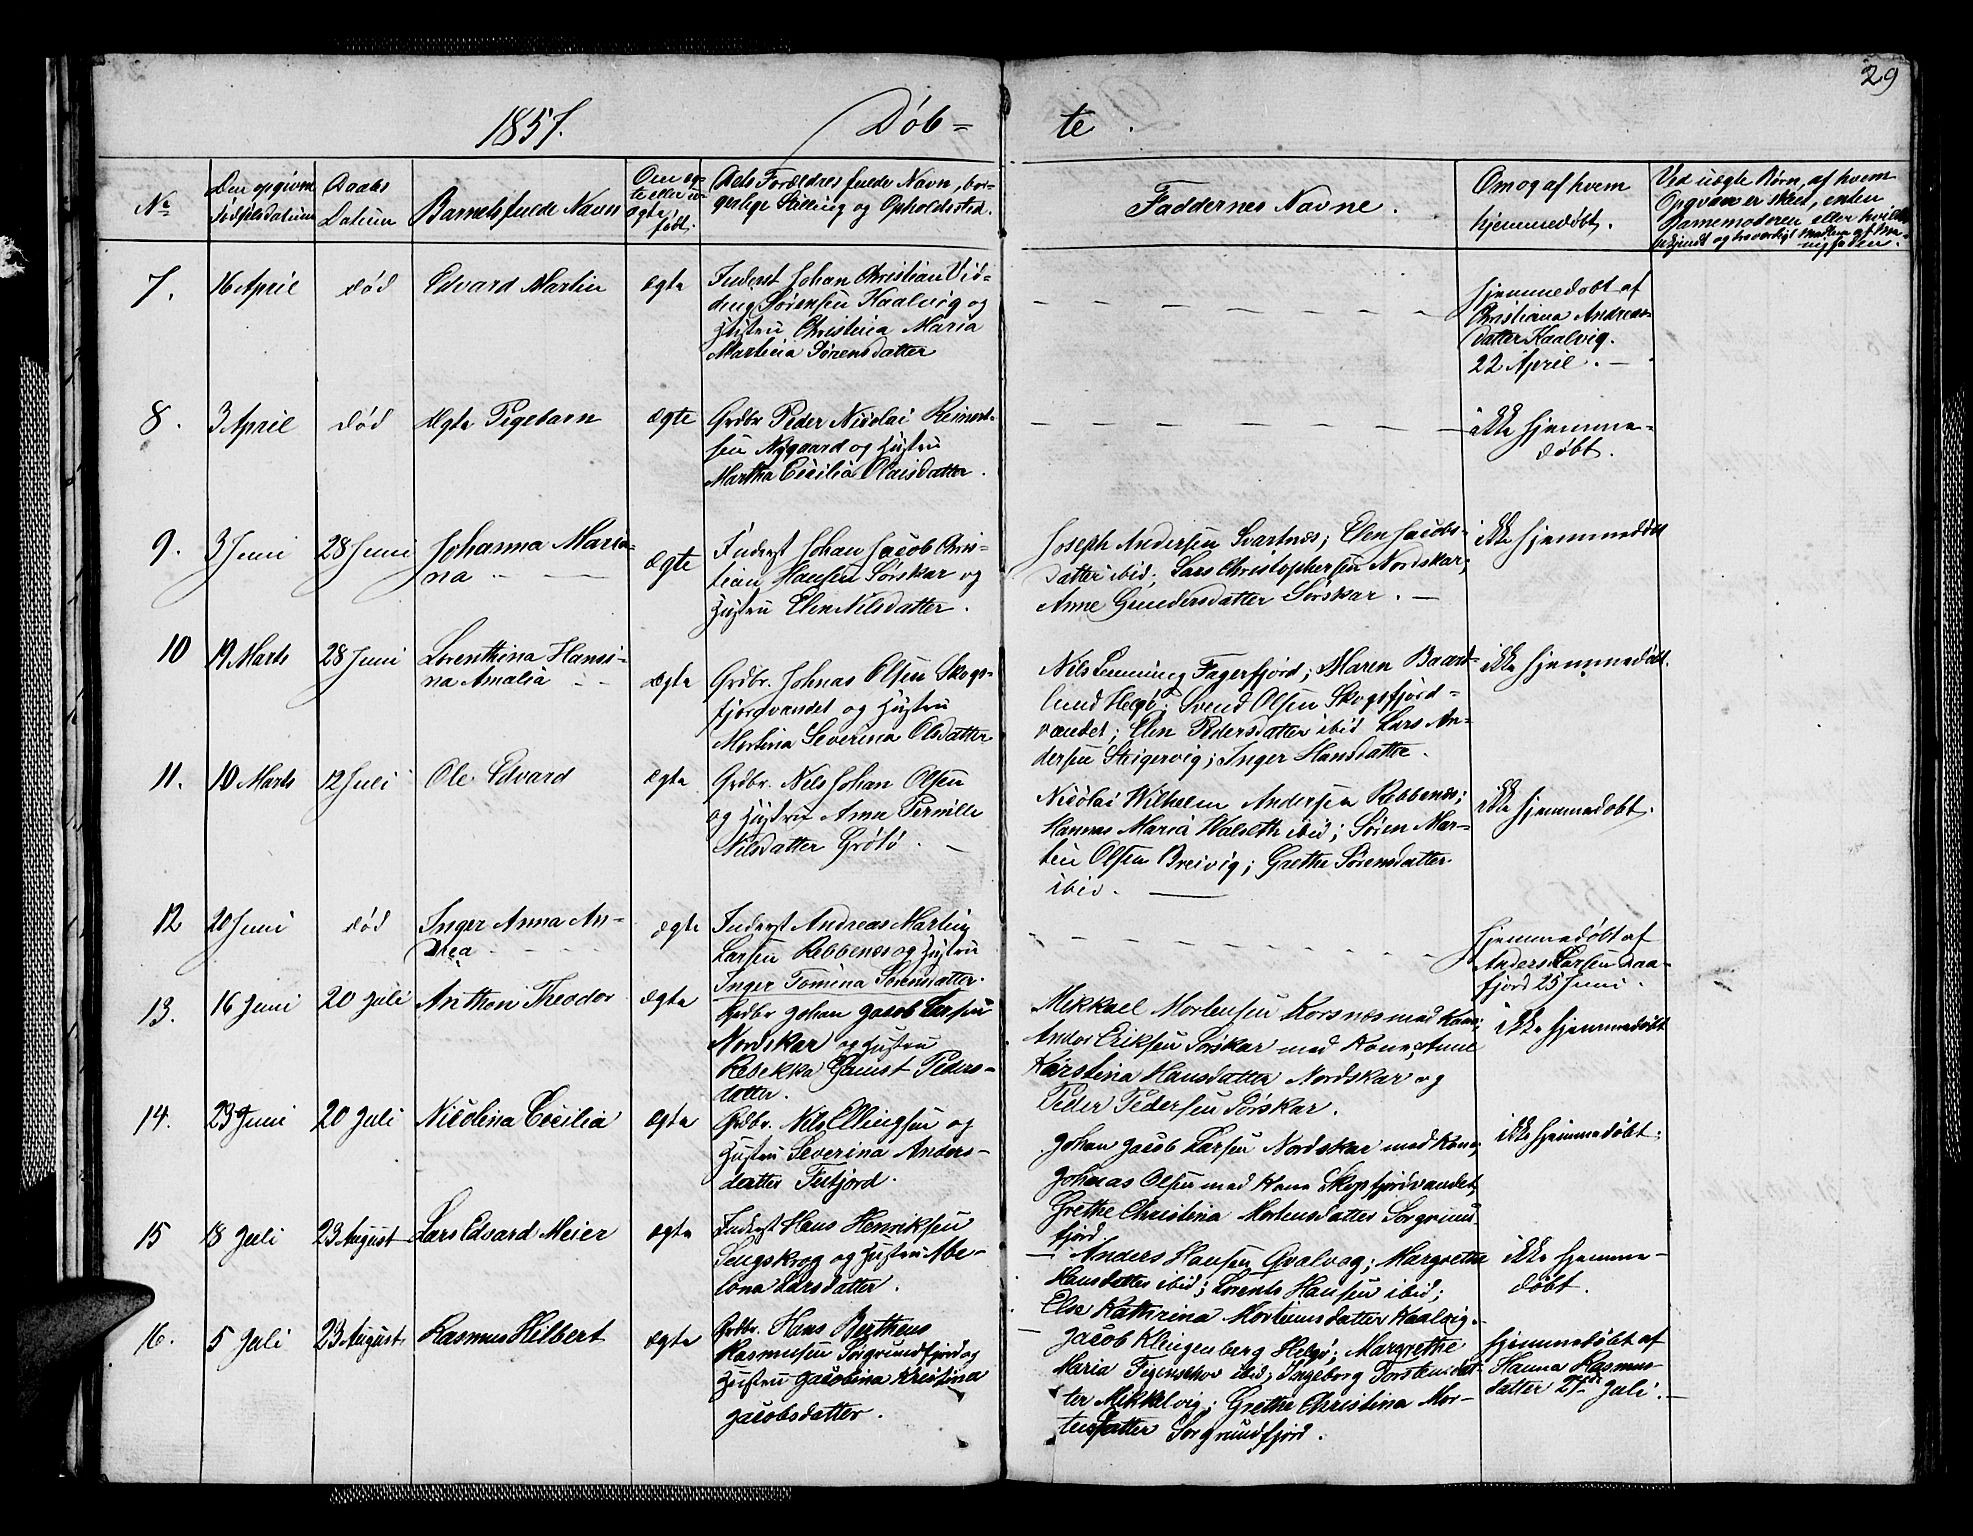 29
1857.
Døb=
te.
No
Den opgivne
Fødselsdatum
Daabs
Datum
Barnets fulde Navn
Om æg-
te eller u-
ægte
født.
Forældres fulde Navn, bor-
gerlige Stilling og Opholdssted.
Faddernes Navne.
Om og af hvem
hjemmedøbt.
Ved uægte Børn, af hvem
Opgvaen er skeet, enten
7.
16 April
død
Edvard Martin
ægte
Inderst Johan Christian Vid-
ding Sørensen Kaalvig og
Hustru Christina Maria
Martina Sørensdatter
hjemmedøbt af
Christiana Andreas-
datter Kaalvig.
22 April.
8.
3 April
død
ægte Pigebarn
ægte
Grdbr Peder Nicolai Reinert-
sen Nygaard og Hustru
Martha Cecilia Olaisdatter.
ikke hjemme-
døbt.
9.
3 Juni
28 Juni
Johanna Maria-
na
ægte
Inderst Johan Jacob Chris-
tian Hansen Sørskar og
Hustru Elen Nilsdatter.
Joseph Andersen Svartnes; Elen Jacobs-
datter ibid; Lars Christophersen Nordskar;
Anne Gundersdatter Sørskar.
ikke hjemmedøbt
10
19 Marts
28 Juni
Lorenthina Hansi-
na Amalia
ægte
Grdbr. Johnas Olsen Skogs-
fjordvandet og Hustru
Martina Severina Olsdatter
Nils Lenning Fagerfjord; Maren Baard-
lund Helgø; Svend Olsen Skogsfjord-
vandet; Elen Pedersdatter ibid Lars An-
dersen Skigervig; Inger Hansdatter.
ikke hjemmedøbt.
11.
10 Marts
12 Juli
Ole Edvard
ægte
Grdbr. Nels Johan Olsen
og Hustru Anna Pernille
Nilsdatter Grøtø.
Nicolai Wilhelm Andersen Rebbenes;
Hannas Maria Walseth ibid; Søren Mar-
tin Olsen Breivig; Grethe Sørensdatter
ibid.
ikke hjemmedøbt.
12
20 Juni
død
Inger Anna An-
drea
ægte
Inderst Andreas Martin
Larsen Rebbenes og Hustru
Inger Tomina Sørensdatter.
hjemmedøbt af
Anders Larsen Daa-
fjord 25 Juni.
13.
16 Juni
20 Juli
Anthon Theodor
ægte
Grdbr Johan Jacob Larsen
Nordskar og Hustru
Rebekka Gamst Peders-
datter.
Mikkael Mortensen Korsnes med Kone;
Anders Eriksen Sørskar med Kone; Anne
Kirstina Hansdatter Nordskar og
Peder Pedersen Sørskar.
ikke hjemmedøbt
14.
23 Juni
20 Juli
Nicolina Cecilia
ægte
Grdbr. Nels Ellingsen og
Hustru Severina Anders-
datter Fisfjord.
Johan Jacob Larsen Nordskar med Kone;
Johnas Olsen med Kone Skogsfjordvandet;
Grethe Christina Mortensdatter Sørgrunn-
fjord.
ikke hjemmedøbt.
15
18 Juli
23 August
Lars Edvard Meier
ægte
Inderst Hans Henriksen
Lengskrog og Hustru Abe-
lona Larsdatter.
Anders Hansen Qvalvog; Margrethe
Hansdatter ibid; Lorents Hansen ibid;
Else Kathrina Mortensdatter Kaalvig.
ikke hjemme-
døbt.
16.
5 Juli
23 August
Rasmus Hilbert
ægte
Grdbr. Hans Bertheus
Rasmusen Sørgrundfjord og
Hustru Jacobina Kristina
Jacobsdatter.
Jacob Klingenberg Helgø; Margrethe
Maria Figenskov ibid; Ingeborg Torstensdat-
ter Mikkelvig; Grethe Christina Mor-
tensdatter Sørgrundfjord.
hjemmedøbt af
Hanna Rasmus-
datter 27de Juli.